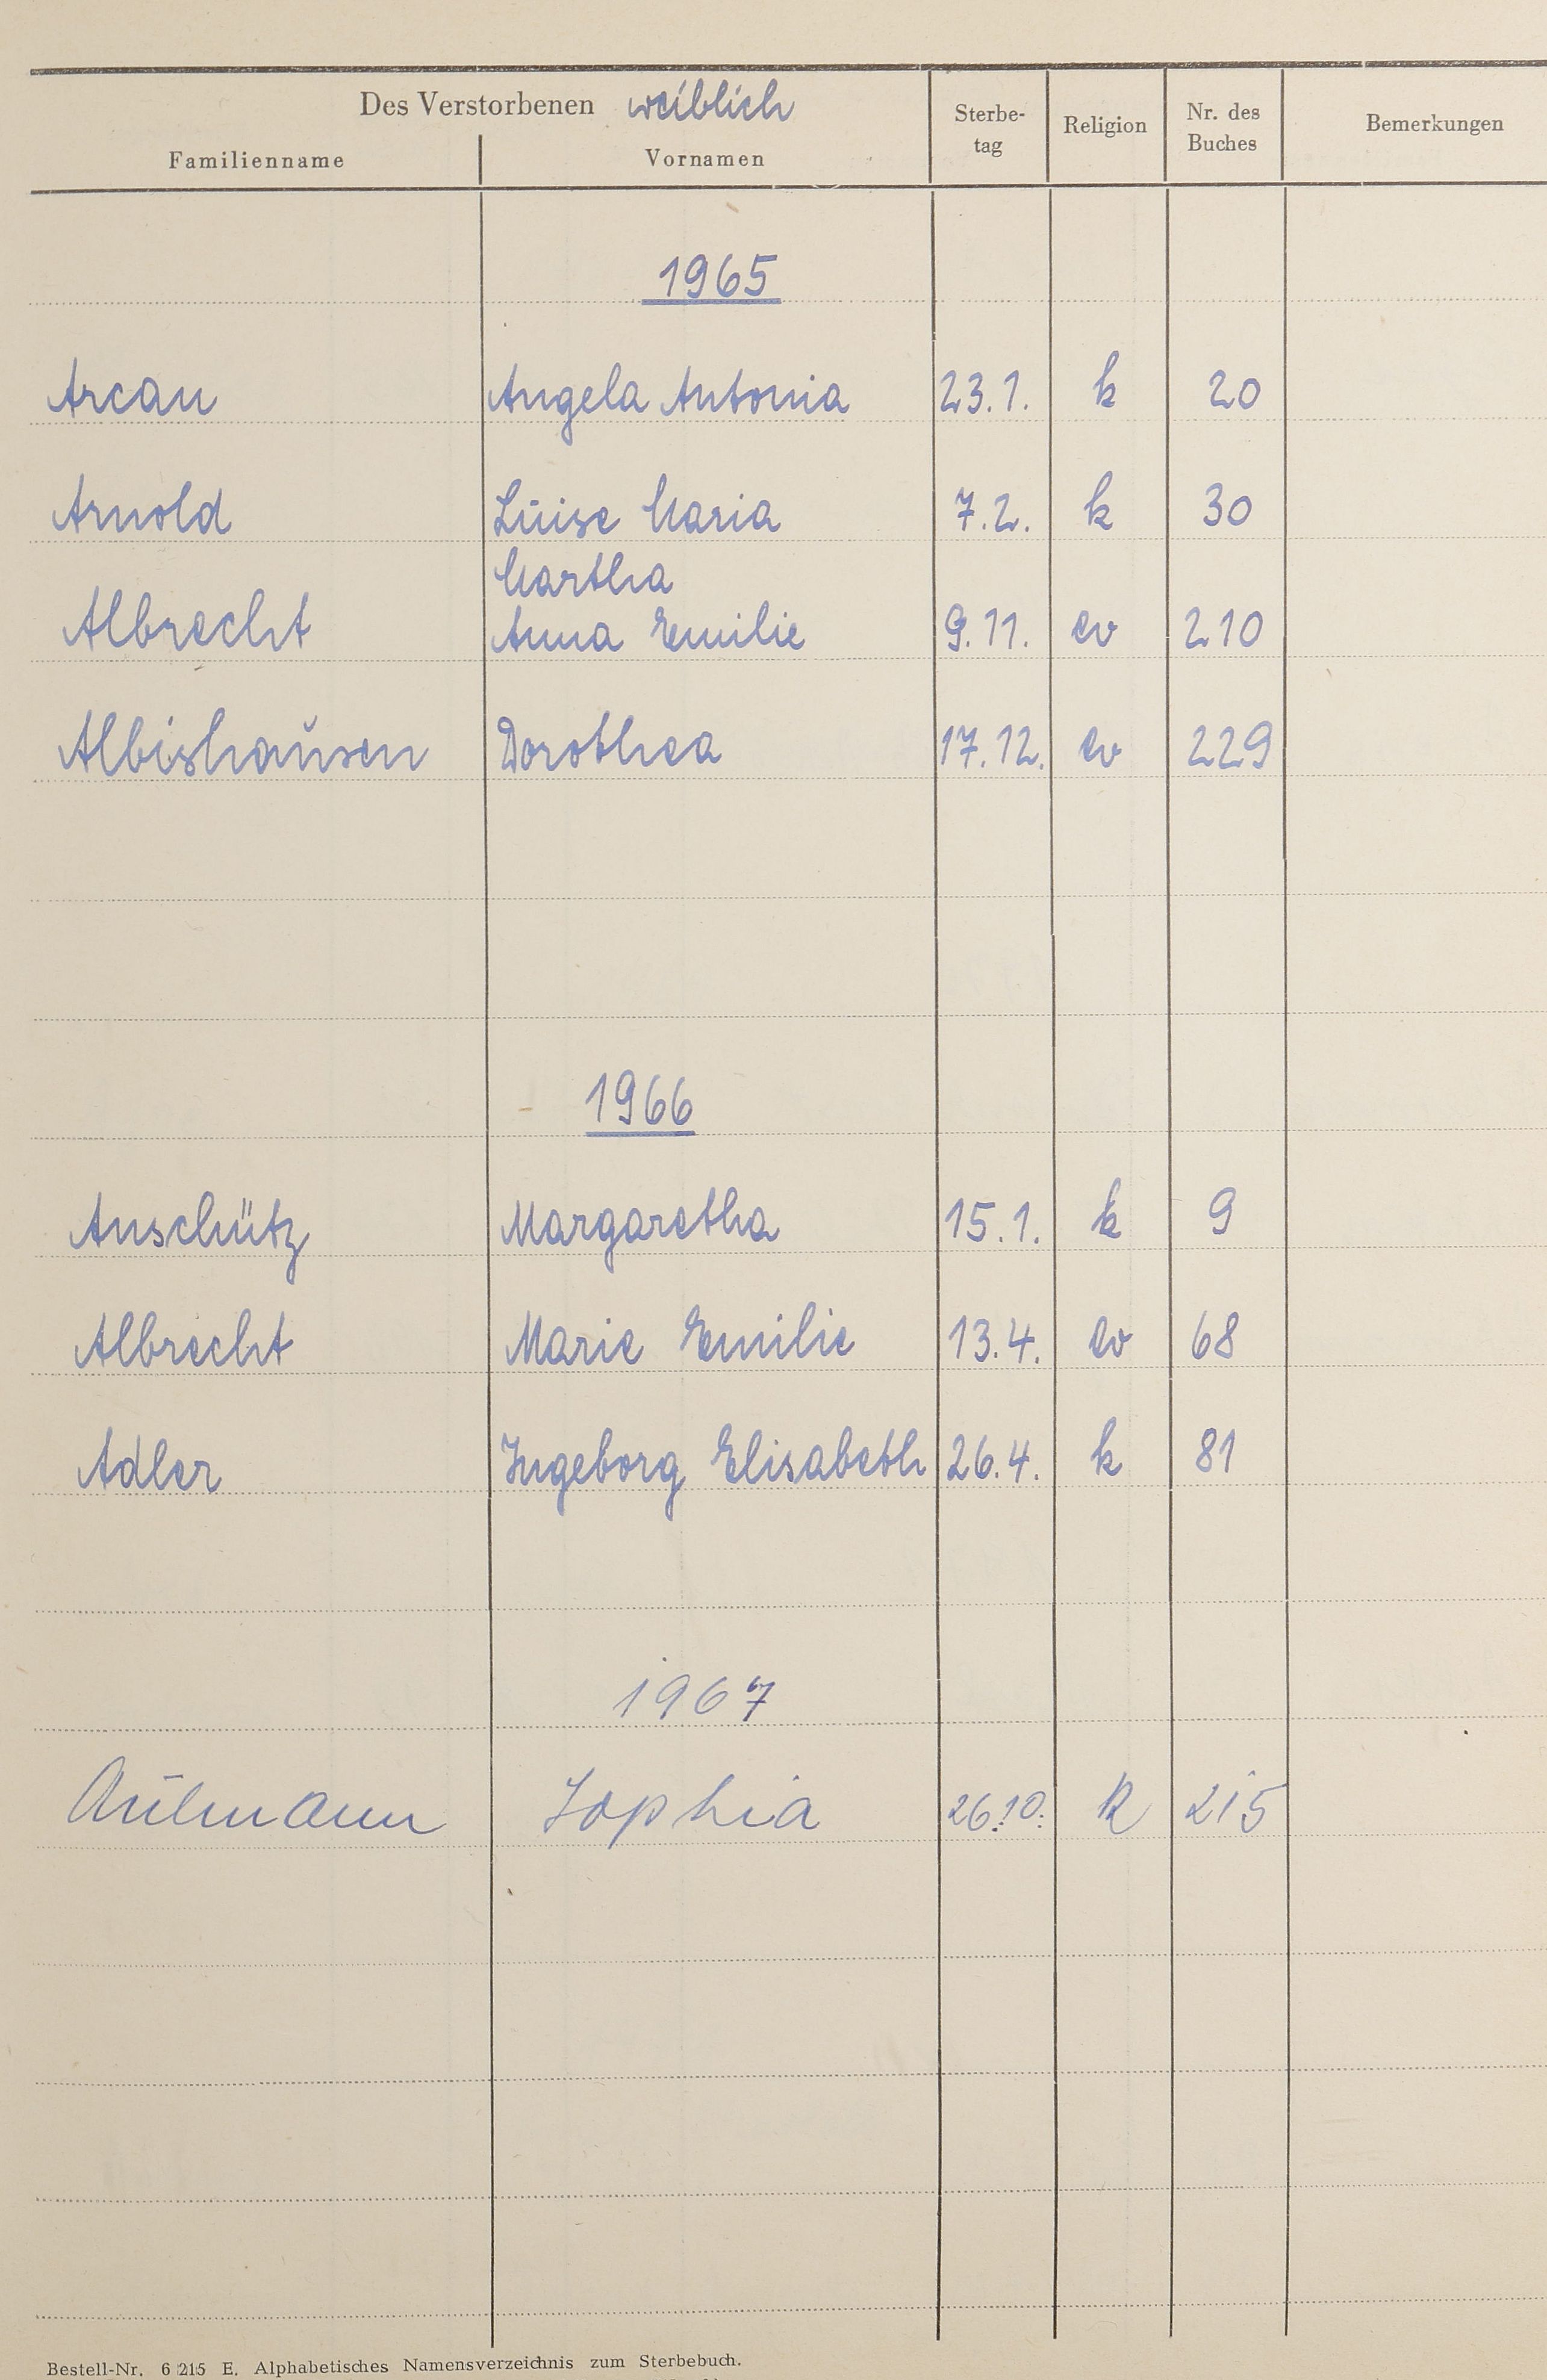 Des Verstorbenen weiblich
Familienname Vornamen Sterbe-tag Religion Nr. des Buches Bemerkungen
1965
Arcan Angela Antonia 23.1. k 20
Arnold Luise Maria 7.2. k 30
Martha
Albrecht Anna Emilie 9.11. ev 210
Albishausen Dorothea 17.12. ev 229
1966
Anschütz Margaretha 15.1. k 9
Albrecht Marie Emilie 13.4. ev 68
Adler Ingeborg Elisabeth 26.4. k 81
1967
Aulmann Sophia 26.10. k 215
Bestell-Nr. 6 215 E. Alphabetisches Namensverzeichnis zum Sterbebuch.